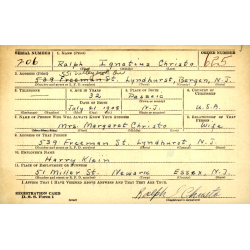 SERIAL NUMBER 1. NAME (Print) ORDER NUMBER
706 Ralph Ignatius Christo 685
2. ADDRESS (Print)
539 Freeman St. Lyndhurst, Bergen, N.J.
3. TELEPHONE 4. AGE IN YEARS 5. PLACE OF BIRTH 6. COUNTRY OF CITIZENSHIP
32 Passaic
July 21 1908 N.J. U.S.A.
7. NAME OF PERSON WHO WILL ALWAYS KNOW YOUR ADDRESS 8. RELATIONSHIP OF THAT PERSON
Mrs. Margaret Christo Wife
9. ADDRESS OF THAT PERSON
539 Freeman St. Lyndhurst, N.J.
10. EMPLOYER'S NAME
Harry Klein
11. PLACE OF EMPLOYMENT OR BUSINESS
51 Miller St. Newark Essex, N.J.
I AFFIRM THAT I HAVE VERIFIED ABOVE ANSWERS AND THAT THEY ARE TRUE.
REGISTRATION CARD
D. S. S. Form 1 Ralph Christo